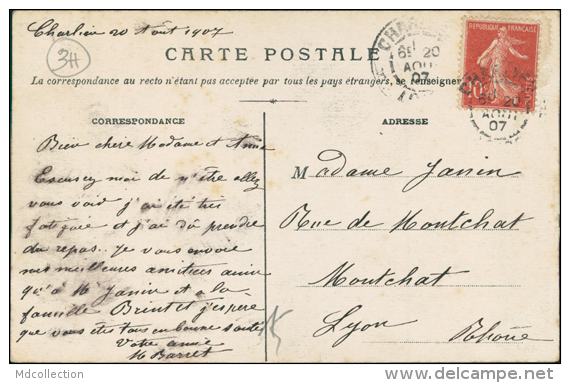 Charlieu 20 Août 1907
3H
CARTE POSTALE
La correspondance au recto n'étant pas acceptée par tous les pays étrangers, se renseigner
RÉPUBLIQUE FRANÇAISE
10
20
AOUT
07
20
AOUT
07
CORRESPONDANCE
ADRESSE
Bien chère Madame et Amie
Excusez moi de n'être allez
vous voir j'ai été très
fatiguée et j'ai dû prendre
du repos. Je vous envoie
mes meilleures amitiées ainsi
qu'à M Janin et a la
famille Brint et j'espère
que vous êtes tous en bonne santé
Votre amie
M Barret
Madame Janin
Rue de Montchat
Montchat
Lyon Rhône
15
Mdcollection
delcampe.net